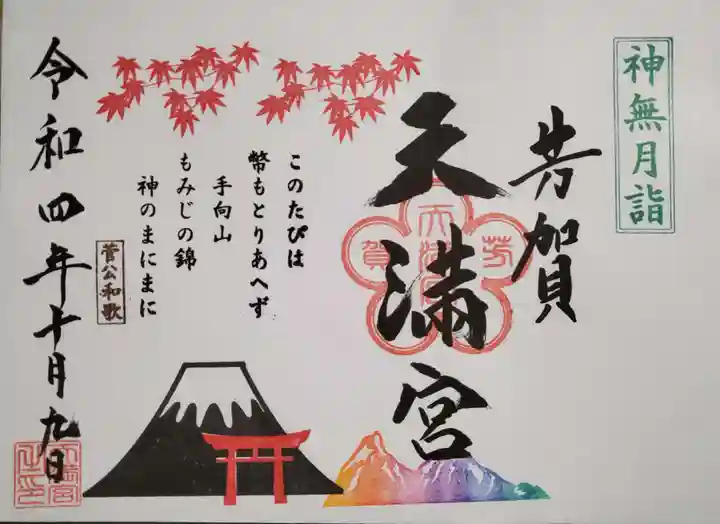 神無月詣
芳賀
天満宮
芳賀
天満宮
このたびは
幣もとりあへず
手向山
もみじの錦
神のまにまに
菅公和歌
令和四年十月九日